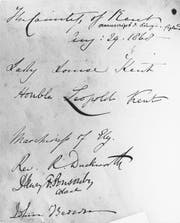 The Countess of Kent
Aug: 29. 1868
Lady Louise Kent
Honble Leopold Kent
Marchioness of Ely.
Rev. R Duckworth
Henry F Ponsonby
John Brown